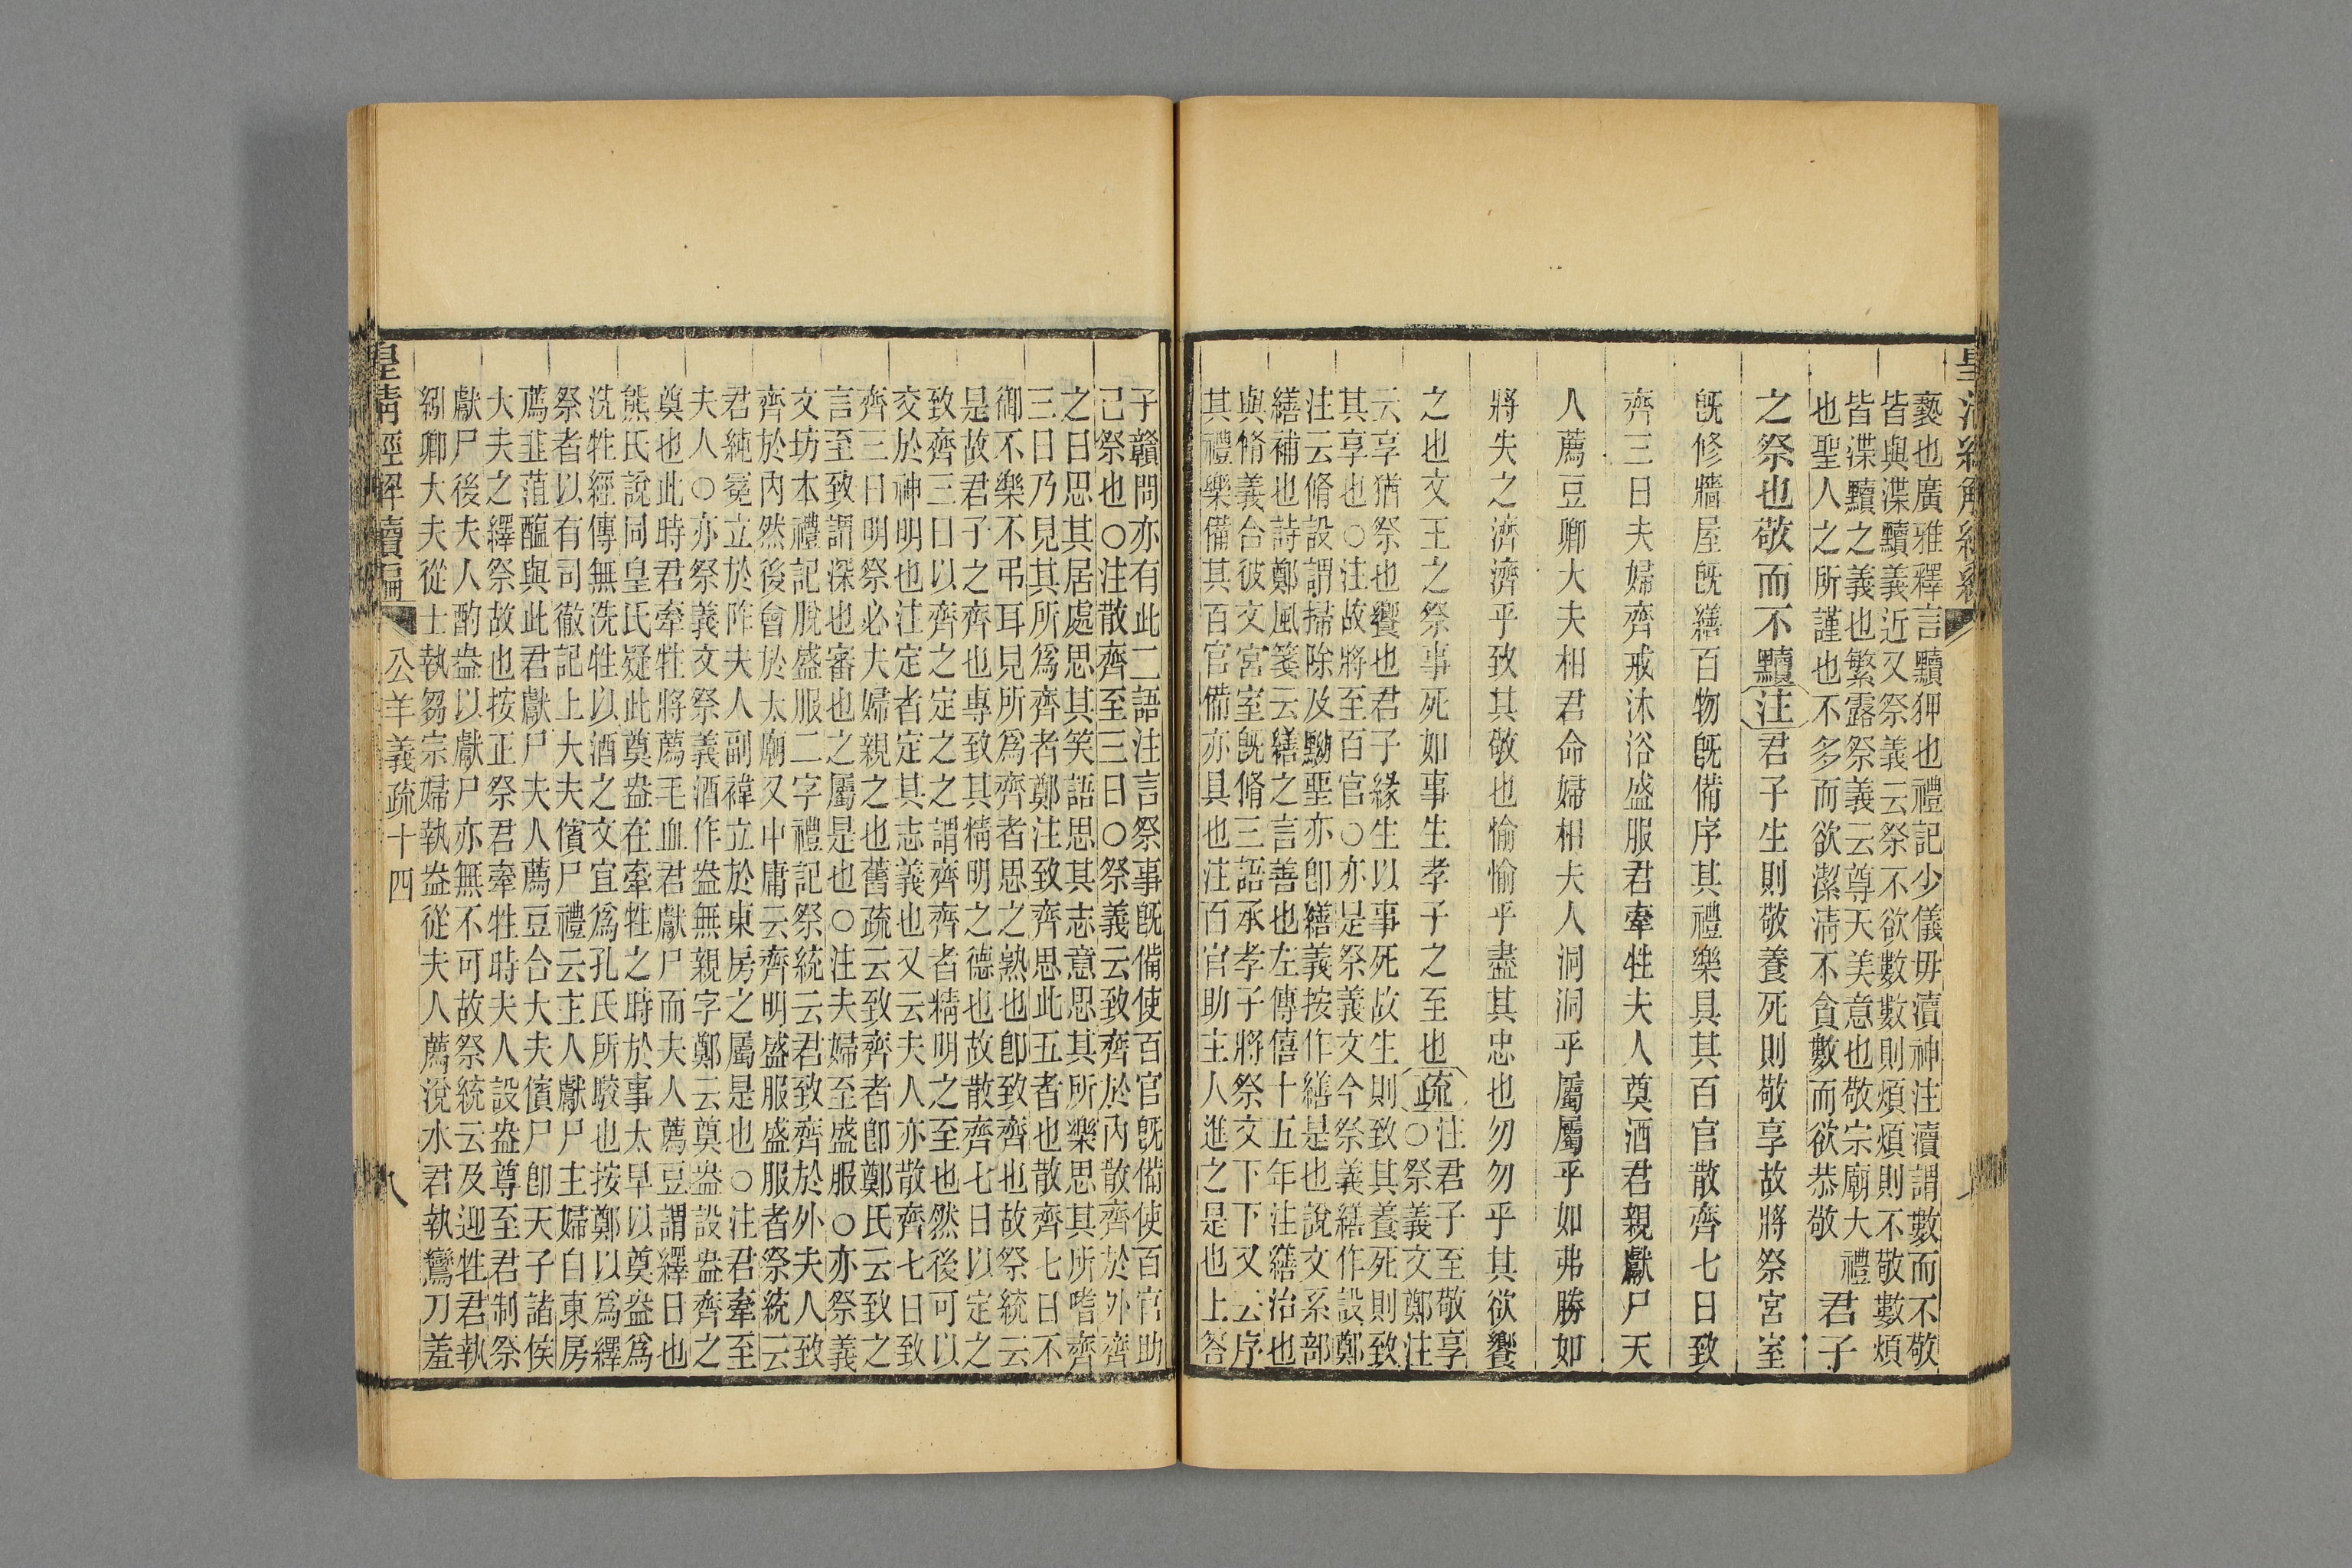 褻也廣雅釋言黷狎也禮記少儀毋瀆神注瀆謂數而不敬
皆與渫黷義近又祭義云祭不欲數數則煩煩則不敬數煩
皆渫黷之義也繁露祭義云尊天美意也敬宗廟大禮
也聖人之所謹也不多而欲潔清不貪數而欲恭敬
君子
之祭也敬而不黷注君子生則敬養死則敬享故將祭宮室
既修牆屋既繕百物既備序其禮樂具其百官散齊七日致
齊三日夫婦齊戒沐浴盛服君牽牲夫人奠酒君親獻尸天
人薦豆卿大夫相君命婦相夫人洞洞乎屬屬乎如弗勝如
將失之濟濟乎致其敬也愉愉乎盡其忠也勿勿乎其欲饗
之也文王之祭事死如事生孝子之至也疏
注君子至敬享
○祭義文鄭注
云享猶祭也饗也君子緣生以事死故生則致其養死則致
其享也○注故將至百官○亦是祭義文今祭義繕作設鄭
注云脩設謂掃除及黝堊亦卽繕義按作繕是也說文系部
繕補也詩鄭風箋云繕之言善也左傳僖十五年注繕治也
與脩義合彼文宮室既脩三語承孝子將祭文下下又云序
其禮樂備其百官備亦具也注百官助主人進之是也上答
子贛問亦有此二語注言祭事既備使百官既備使百官助
己祭也○注散齊至三日○祭義云致齊於內散齊於外齊
之日思其居處思其笑語思其志意思其所樂思其所嗜齊
三日乃見其所爲齊者鄭注致齊思此五者也散齊七日不
御不樂不弔耳見所爲齊者思之熟也卽致齊也故祭統云
是故君子之齊也專致其精明之德也故散齊七日以定之
致齊三日以齊之定之之謂齊齊者精明之至也然後可以
交於神明也注定者定其志義也又云夫人亦散齊七日致
齊三日明祭必夫婦親之也舊疏云致齊者卽鄭氏云致之
言至致謂深也審也之屬是也○注夫婦至盛服○亦祭義
文坊本禮記脫盛服二字禮記祭統云君致齊於外夫人致
齊於內然後會於太廟又中庸云齊明盛服盛服者祭統云
君純冕立於阼夫人副褘立於東房之屬是也○注君牽至
夫人○亦祭義文祭義酒作盎無親字鄭云奠盎設盎齊之
奠也此時君牽牲將薦毛血君獻尸而夫人薦豆謂繹日也
熊氏說同皇氏疑此奠盎在牽牲之時於事太早以奠盎爲
洗牲經傳無洗牲以酒之文宜爲孔氏所駮也按鄭以爲繹
祭者以有司徹記上大夫儐尸禮云主人獻尸主婦自東房
薦韭菹醢與此君獻尸夫人薦豆合大夫儐尸卽天子諸侯
大夫之繹祭故也按正祭君牽牲時夫人設盎尊至君制祭
獻尸後夫人酌盎以獻尸亦無不可故祭統云及迎牲君執
紖卿大夫從士執芻宗婦執盎從夫人薦涗水君執鸞刀羞
皇清經解續編
公羊義疏十四
八